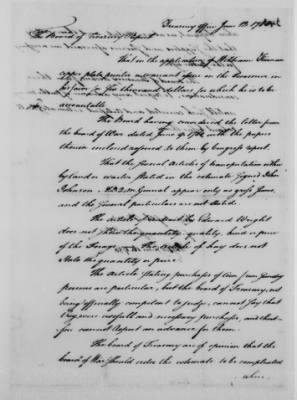 Treasury Office June 13. 17
The Board of Treasury Report
That on the application of William
copper plate printer a warrant issue on the Treasurer in
his favor for five thousand dollars for which he is to be
accountable.
The Board having considered the letter from
the board of war dated June 9 with the papers
therein enclosed referred to them by Congress report.
That the several Articles of transportation either
by land or water stated in the estimate signed John
Johnson A.D.Q.M. General appear only as gross Sums,
and the several particulars are not stated.
The Edward Wright
does not the quantity, quality, kind or price
of the Forage. The of hay does not
State the quantity or price.
The Article stating purchases of from Sundry
persons are particular, but the board of Treasury, not
being officially competent to judge, cannot say that
they were usefull and necessary purchases, and there-
fore cannot report an advance for them.
The board of Treasury are of opinion that the
board of War should order the estimate to be compleated